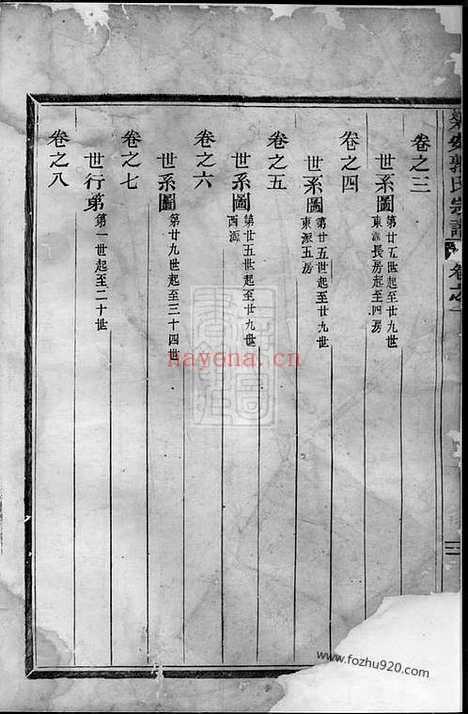 氏宗譜 卷之一
卷之三
世系圖 第廿五世起至廿九世 東派長房起至四房
卷之四
世系圖 第廿五世起至廿九世 東派五房
卷之五
世系圖 第廿五世起至廿九世 西派
卷之六
世系圖 第廿九世起至三十四世
卷之七
世行第 第一世起至二十世
卷之八
hayona.cn
www.fozhu920.com